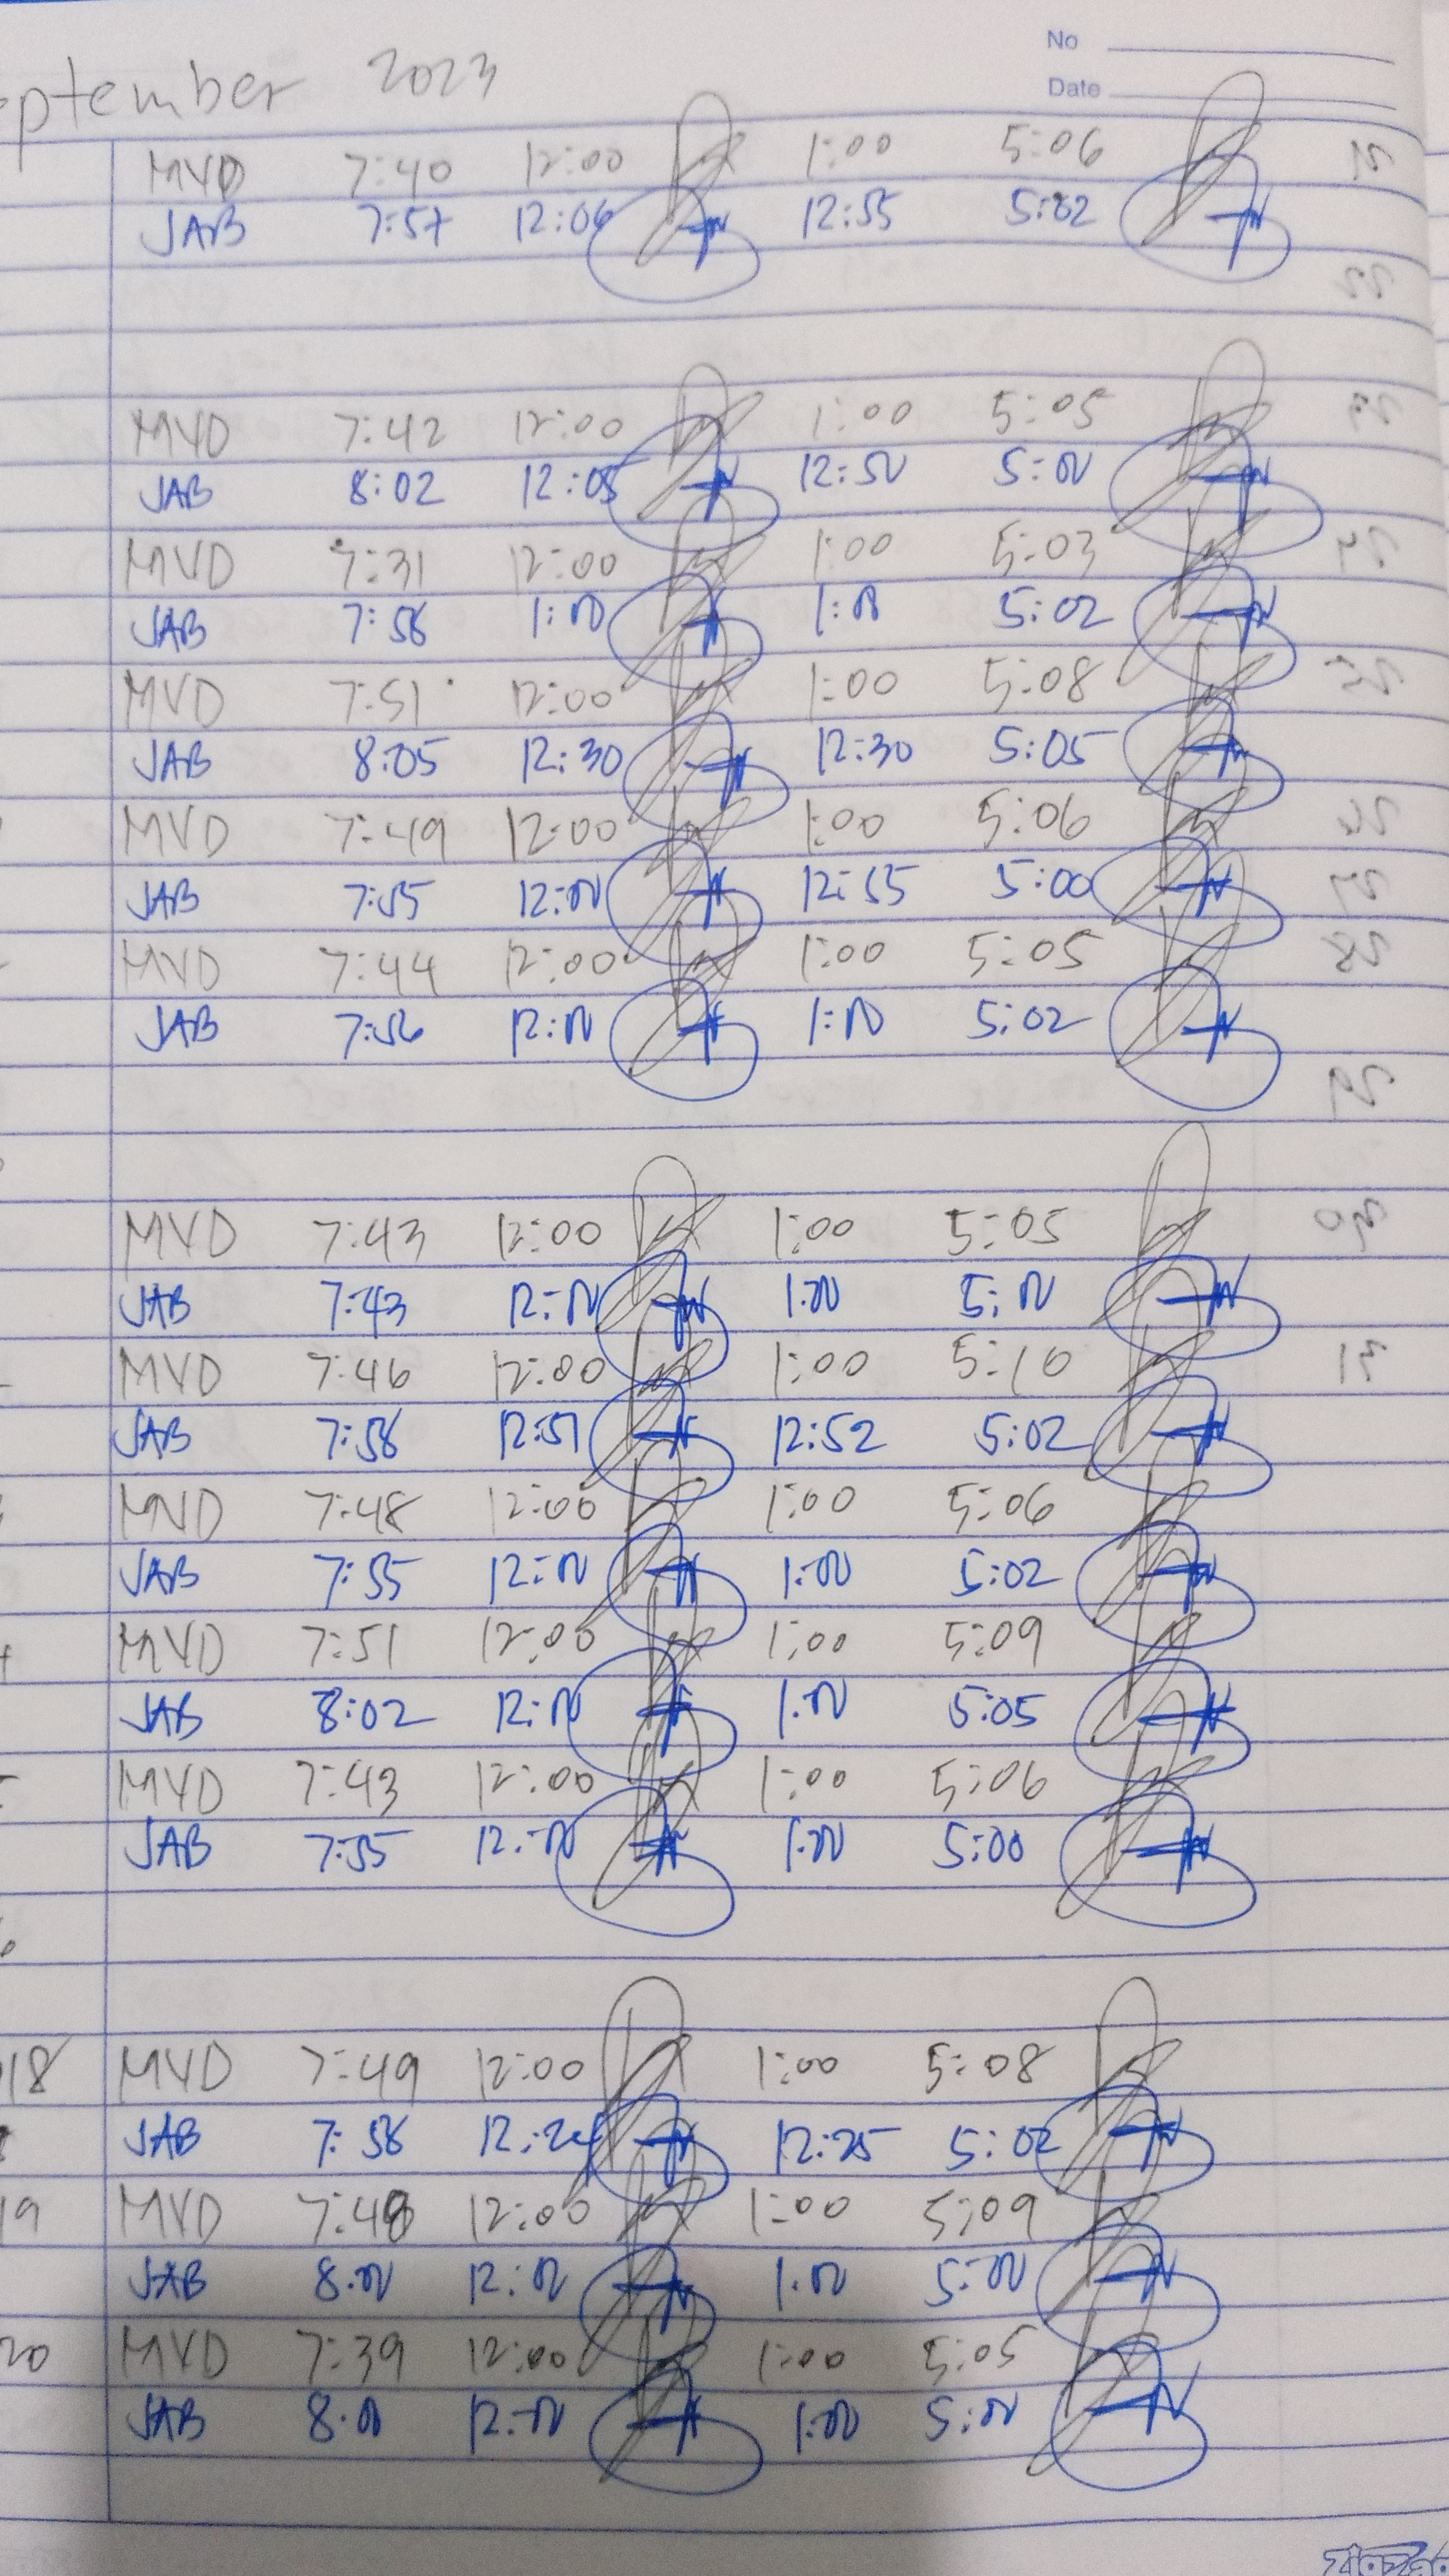 eptember 2023
No
Date
MVD 7:40 12:00 1:00 5:06
JAB 7:57 12:06 12:55 5:02
MVD 7:42 12:00 1:00 5:05
JAB 8:02 12:05 12:50 5:00
MVD 7:31 12:00 1:00 5:03
JAB 7:58 1:00 1:00 5:02
MVD 7:51 12:00 1:00 5:08
JAB 8:05 12:30 12:30 5:05
MVD 7:49 12:00 1:00 5:06
JAB 7:55 12:00 12:55 5:00
MVD 7:44 12:00 1:00 5:05
JAB 7:56 12:00 1:00 5:02
MVD 7:43 12:00 1:00 5:05
JAB 7:43 12:00 1:00 5:00
MVD 7:46 12:00 1:00 5:10
JAB 7:58 12:51 12:52 5:02
MVD 7:48 12:00 1:00 5:06
JAB 7:55 12:00 1:00 5:02
MVD 7:51 12:00 1:00 5:09
JAB 8:02 12:00 1:00 5:05
MVD 7:43 12:00 1:00 5:06
JAB 7:55 12:00 1:00 5:00
18 MVD 7:49 12:00 1:00 5:08
JAB 7:58 12:24 12:25 5:02
19 MVD 7:48 12:00 1:00 5:09
JAB 8:00 12:00 1:00 5:00
20 MVD 7:39 12:00 1:00 5:05
JAB 8:00 12:00 1:00 5:00